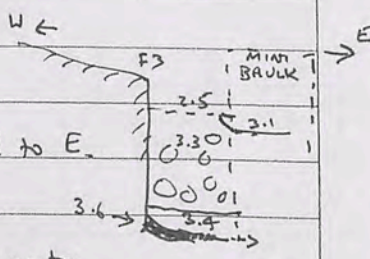 W ← → E
F3 MINI
BAULK
2.5
3.1
to E. 3.3
3.6 → 3.4